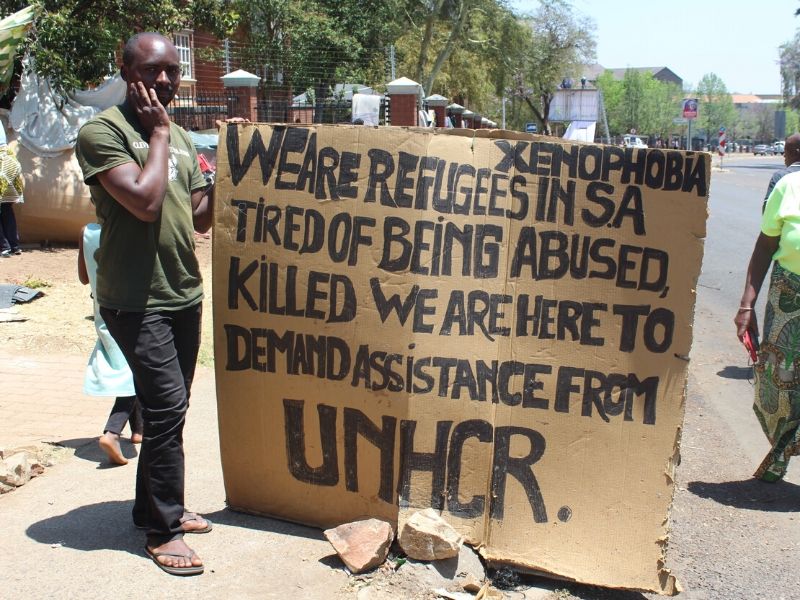 XENOPHOBIA
WE ARE REFUGEES IN S.A
TIRED OF BEING ABUSED,
KILLED WE ARE HERE TO
DEMAND ASSISTANCE FROM
UNHCR.